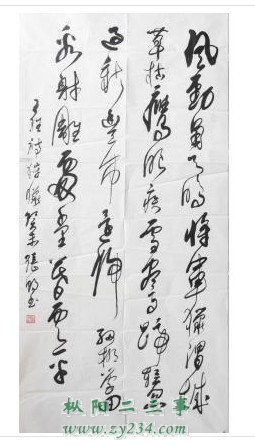 風勁角弓鳴將軍獵渭城
草枯鷹眼疾雪盡馬蹄輕忽
過新豐市還歸細柳營回
看射雕處千里暮雲平
王維詩獵癸未張書
枞阳二三事
www.zy234.com